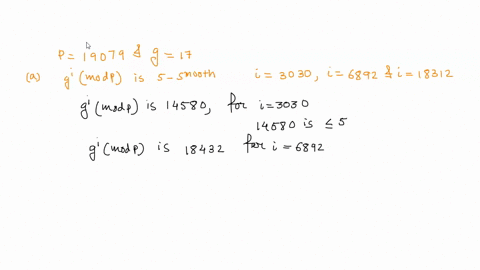 P = 19079 & g = 17
(a) gⁱ (mod P) is 5-smooth i = 3030, i = 6892 & i = 18312
gⁱ (mod P) is 14580, for i = 3030
14580 is ≤ 5
gⁱ (mod P) is 18432 for i = 6892